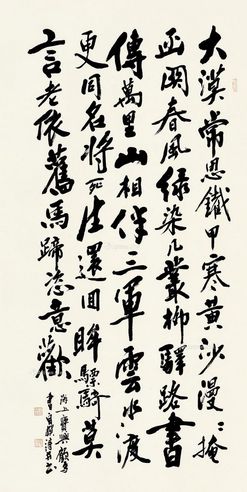 大漠常思鐵甲寒黃沙漫漫掩
函關春風綠染幾叢柳驛路書
傳萬里山相伴三軍雲水渡
更同名將死生還回眸驃騎莫
言老依舊馬蹄恣意歡